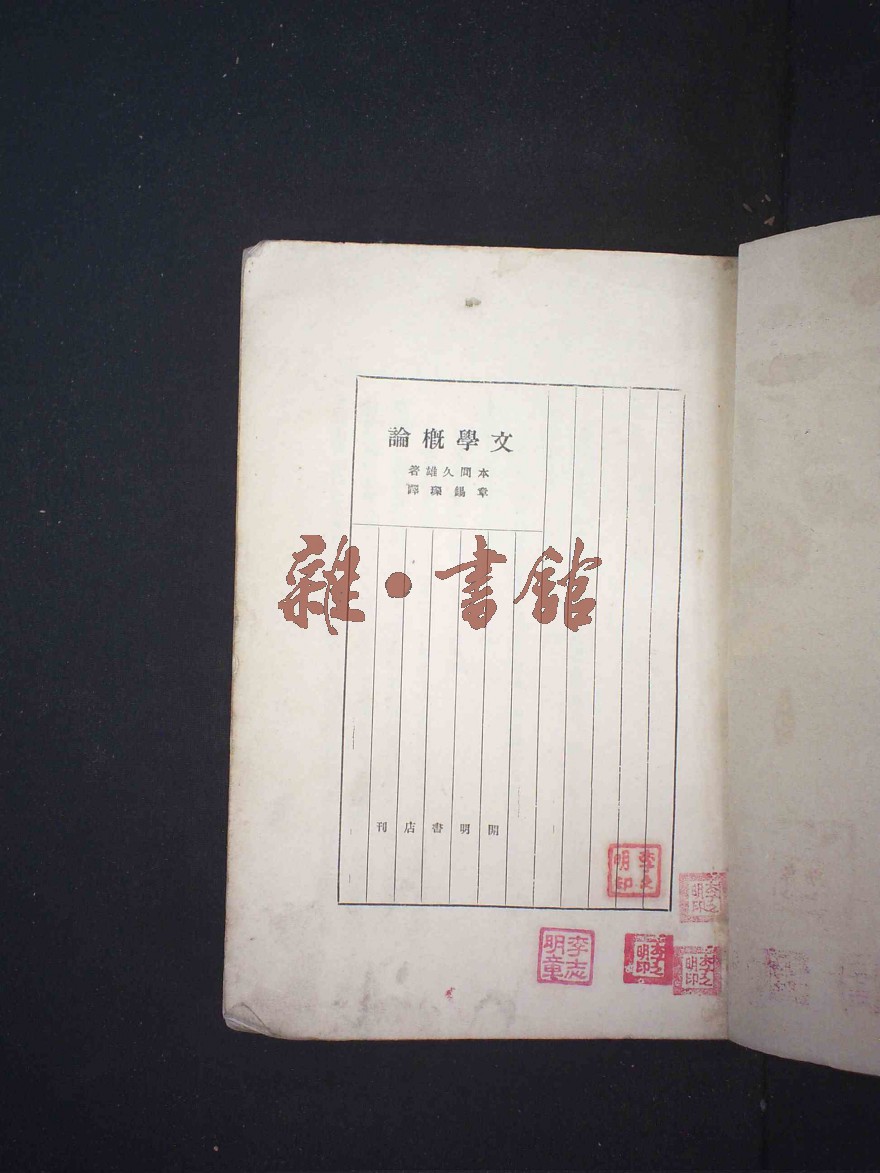 文學概論
本間久雄著
章錫琛譯
雜·書館
開明書店刊
李之明印
李之明印
李志明章
李之明印
李之明印